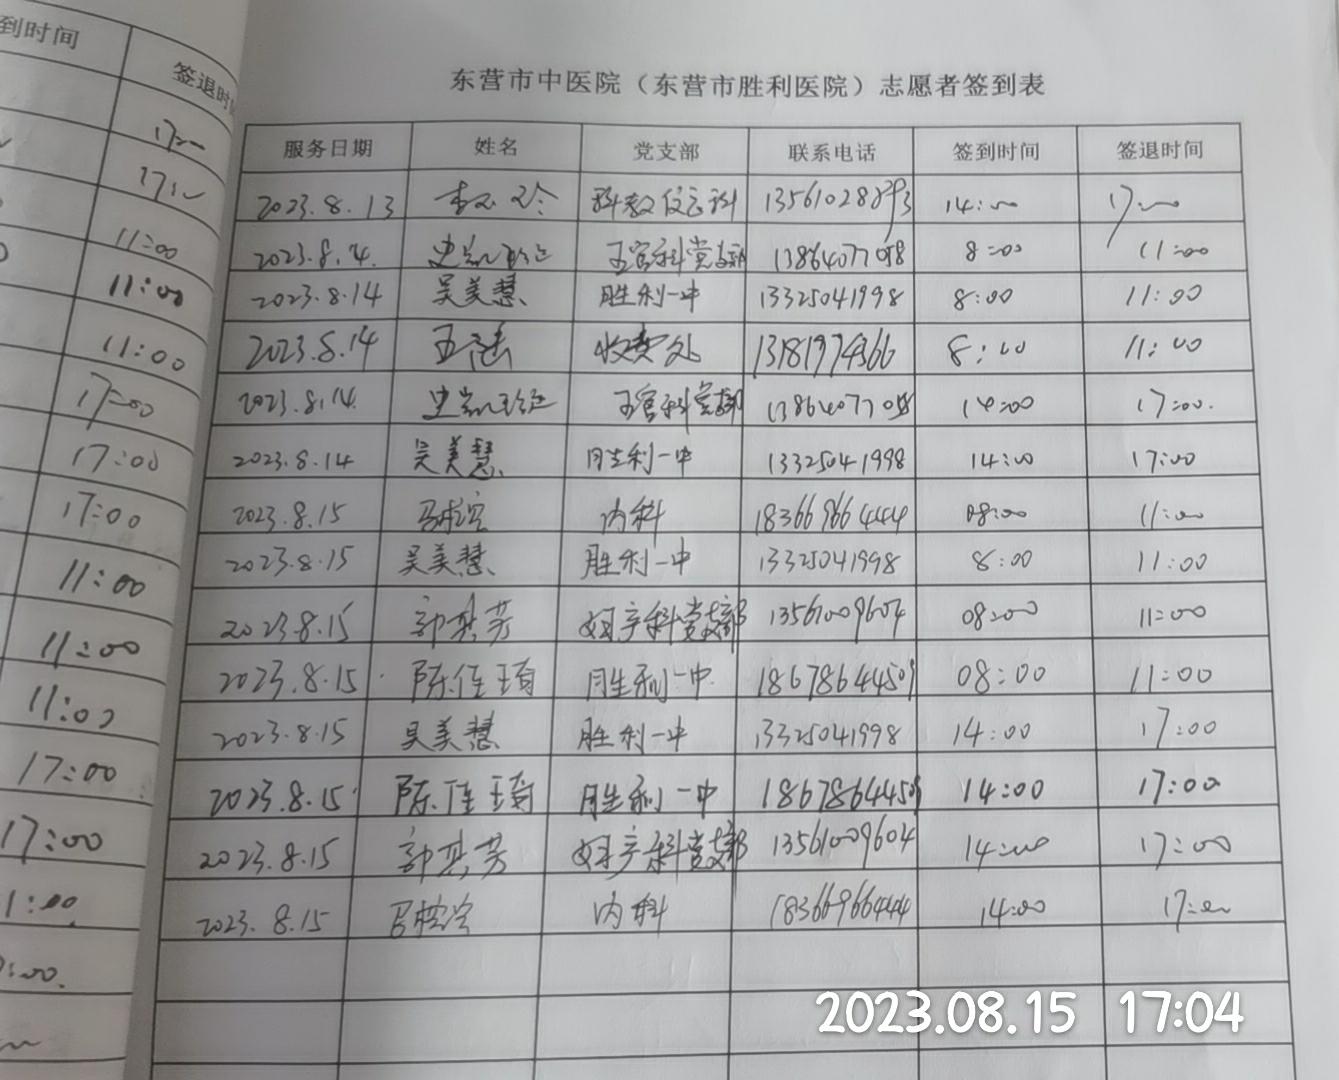 到时间 签退时
17:00
11:00
11:00
11:00
17:00
17:00
17:00
11:00
11:00
11:00
17:00
17:00
东营市中医院（东营市胜利医院）志愿者签到表
服务日期 姓名 党支部 联系电话 签到时间 签退时间
2023.8.13 14:00 17:00
2023.8.14. 13864077058 8:00 11:00
2023.8.14 吴美慧 胜利一中 13325041998 8:00 11:00
2023.8.14 收费处 13181974366 8:00 11:00
2023.8.14. 14:00 17:00.
2023.8.14 吴美慧 胜利一中 13325041998 14:00 17:00
2023.8.15 内科 18366966444 08:00 11:00
2023.8.15 吴美慧 胜利一中 13325041998 8:00 11:00
2023.8.15 郭其芳 妇产科党支部 13561009604 08:00 11:00
2023.8.15 陈佳琦 胜利一中 18678644509 08:00 11:00
2023.8.15 吴美慧 胜利一中 13325041998 14:00 17:00
2023.8.15 陈佳琦 胜利一中 18678644509 14:00 17:00
2023.8.15 郭其芳 妇产科党支部 13561009604 14:00 17:00
2023.8.15 内科 18366966444 14:00 17:00
2023.08.15 17:04